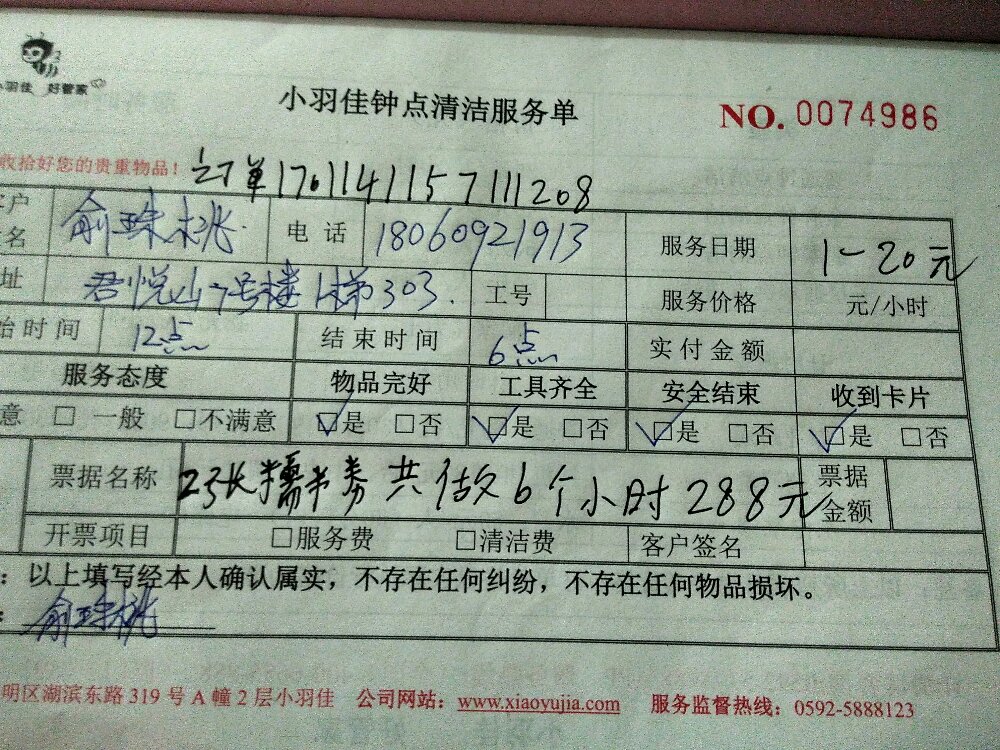 小羽佳 好管家
小羽佳钟点清洁服务单
NO. 0074986
收拾好您的贵重物品！
订单170114115711208
客户签名 俞珠桃 电话 18060921913 服务日期 1-20元
址 君悦山7号楼1梯303. 工号 服务价格 元/小时
始时间 12点 结束时间 6点 实付金额
服务态度 物品完好 工具齐全 安全结束 收到卡片
意 □ 一般 □不满意 □是 □否 □是 □否 □是 □否 □是 □否
票据名称 2张糯米券共做6个小时288元 票据金额
开票项目 □服务费 □清洁费 客户签名
：以上填写经本人确认属实，不存在任何纠纷，不存在任何物品损坏。
：俞珠桃
明区湖滨东路 319 号 A 幢 2 层小羽佳 公司网站：www.xiaoyujia.com 服务监督热线：0592-5888123